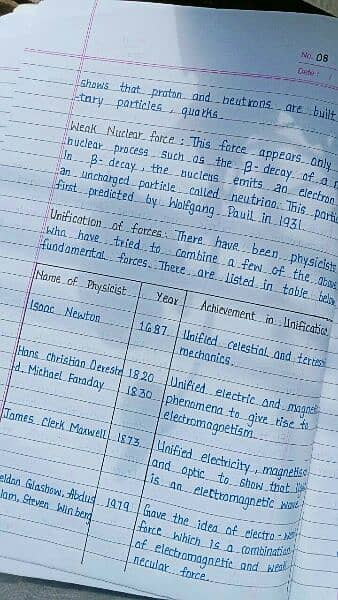 No. 08
Date :
shows that proton and neutrons are built
-tary particles, quarks.
Weak Nuclear force : This force appears only
nuclear process such as the β-decay of a n
In β-decay, the nucleus emits an electron
an uncharged particle called neutrino. This parti
first predicted by Wolfgang Pauli in 1931.
Unification of forces. There have been physicists
who have tried to combine a few of the above
fundamental forces. There are listed in table below
Name of Physicist Year Achievement in Unificatio
Isaac Newton 1687 Unified celestial and terrest
mechanics.
Hans Christian Oerested 1820 Unified electric and magnet
d. Michael Faraday 1830 phenomena to give rise to
electromagnetism.
James Clerk Maxwell 1873 Unified electricity, magnetism
and optic to show that
is an elettromagnetic wave
eldon Glashow, Abdus 1979 Gave the idea of electro-we
lam, Steven Winberg force which is a combination
of electromagnetic and weak
necular force.